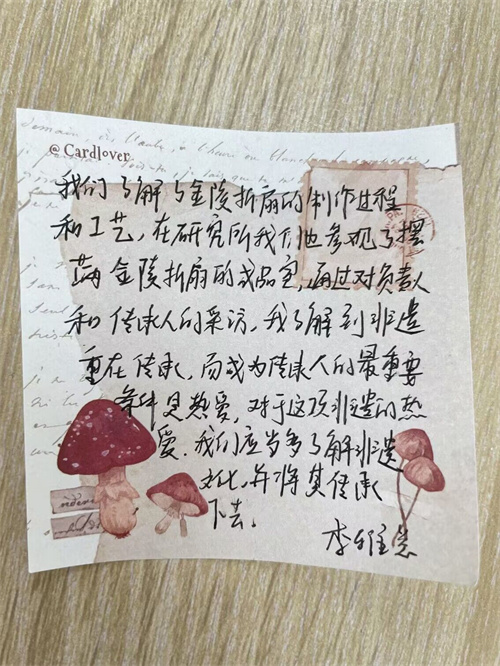 @Cardlover
我们了解了金陵折扇的制作过程
和工艺,在研究所我们也参观了摆
满金陵折扇的成品室,通过对负责人
和传承人的采访,我了解到非遗
重在传承,而成为传承人的最重要
条件是热爱,对于这项非遗的热
爱.我们应当多了解非遗
文化,并将其传承
下去.
李雅